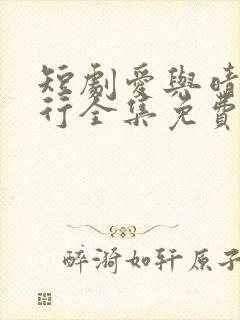 短劇愛與晴
行全集免費
醉漪如轩原子